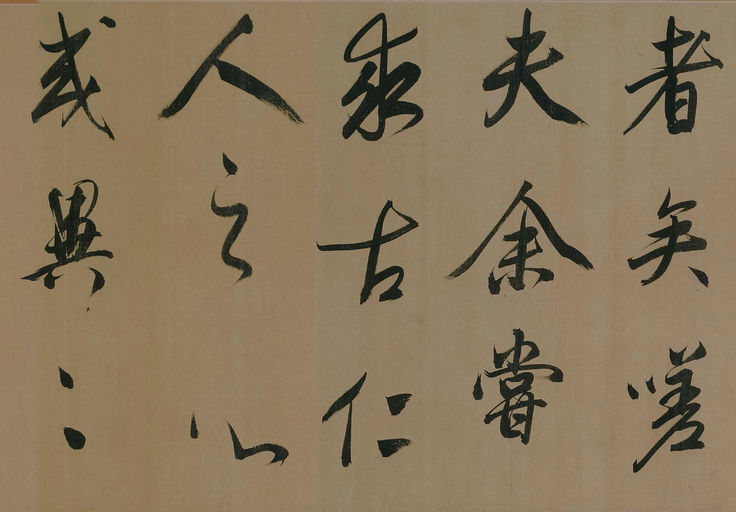 者矣嗟
夫余嘗
求古仁
人之心
或異二